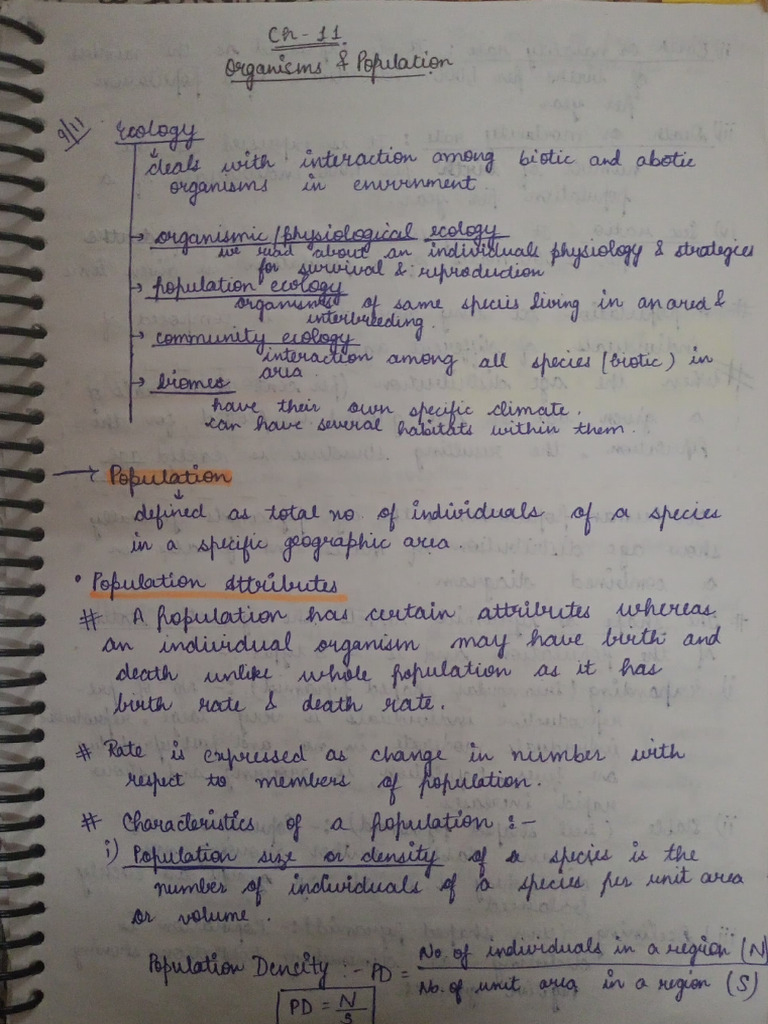 Ch - 11
Organisms & Population
9/11
Ecology
deals with interaction among biotic and abotic
organisms in envirnment
→ organismic/physiological ecology
we read about an individuals physiology & strategies
for survival & reproduction
→ population ecology
organisms of same species living in an area &
interbreeding.
→ community ecology
interaction among all species (biotic) in
area
→ biomes
have their own specific climate.
can have several habitats within them.
→ Population
defined as total no of individuals of a species
in a specific geographic area.
• Population attributes
# A population has certain attributes whereas
an individual organism may have birth and
death unlike whole population as it has
birth rate & death rate.
# Rate is expressed as change in number with
respect to members of population.
# Characteristics of a population :-
i) Population size or density of a species is the
number of individuals of a species per unit area
or volume.
Population Density :- PD = No. of individuals in a region (N)
No. of unit area in a region (S)
PD = N
S